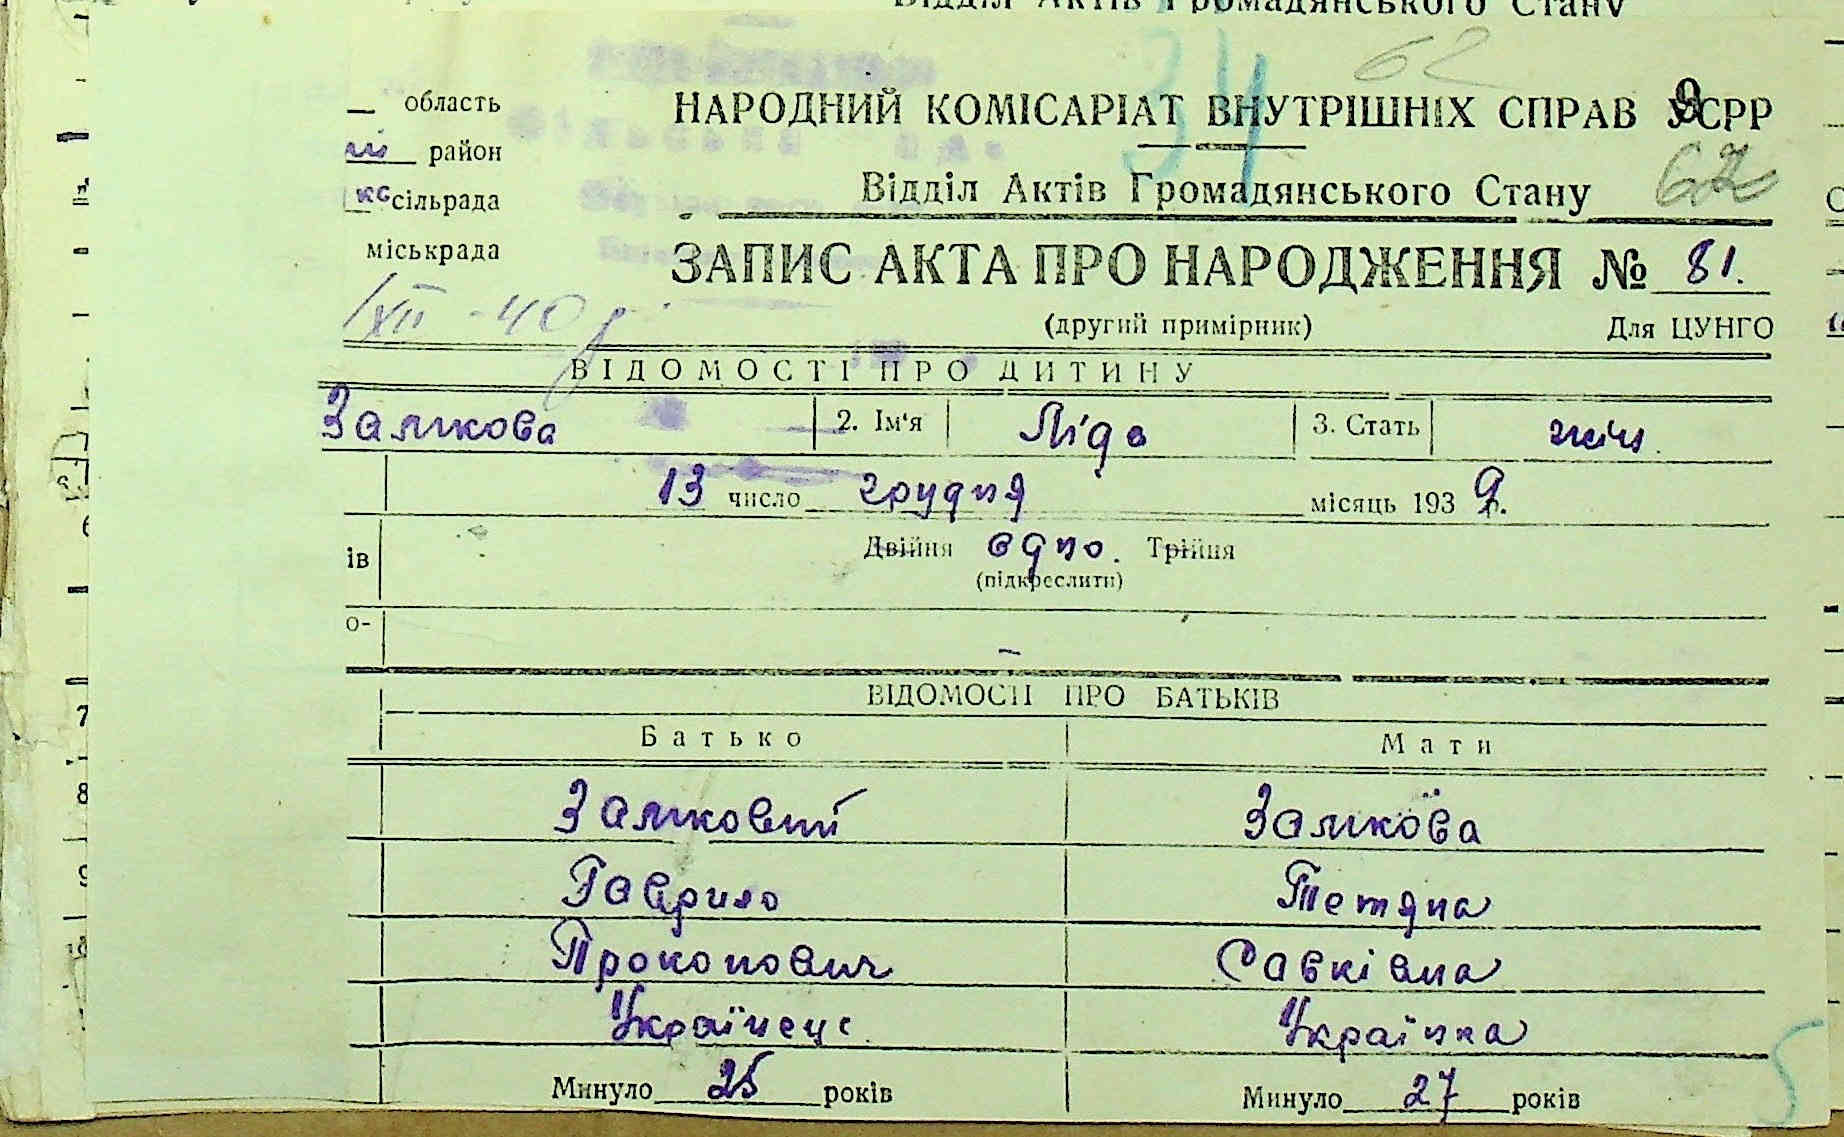 Відділ Актів Громадянського Стану
34
62
область
НАРОДНИЙ КОМІСАРІАТ ВНУТРІШНІХ СПРАВ УСРР
ий район
62
кс сільрада
Відділ Актів Громадянського Стану
міськрада
ЗАПИС АКТА ПРО НАРОДЖЕННЯ № 81.
(другий примірник) Для ЦУНГО
ВІДОМОСТІ ПРО ДИТИНУ
Замкова 2. Ім'я Ліда 3. Стать жін.
13 число грудня місяць 1939 р.
ів Двійня одно. Трійня
(підкреслити)
о-
ВІДОМОСТІ ПРО БАТЬКІВ
Батько Мати
Замковий Замкова
Гаврило Тетяна
Прокопович Савківна
Українець Українка
Минуло 25 років Минуло 27 років
5
7
8
9